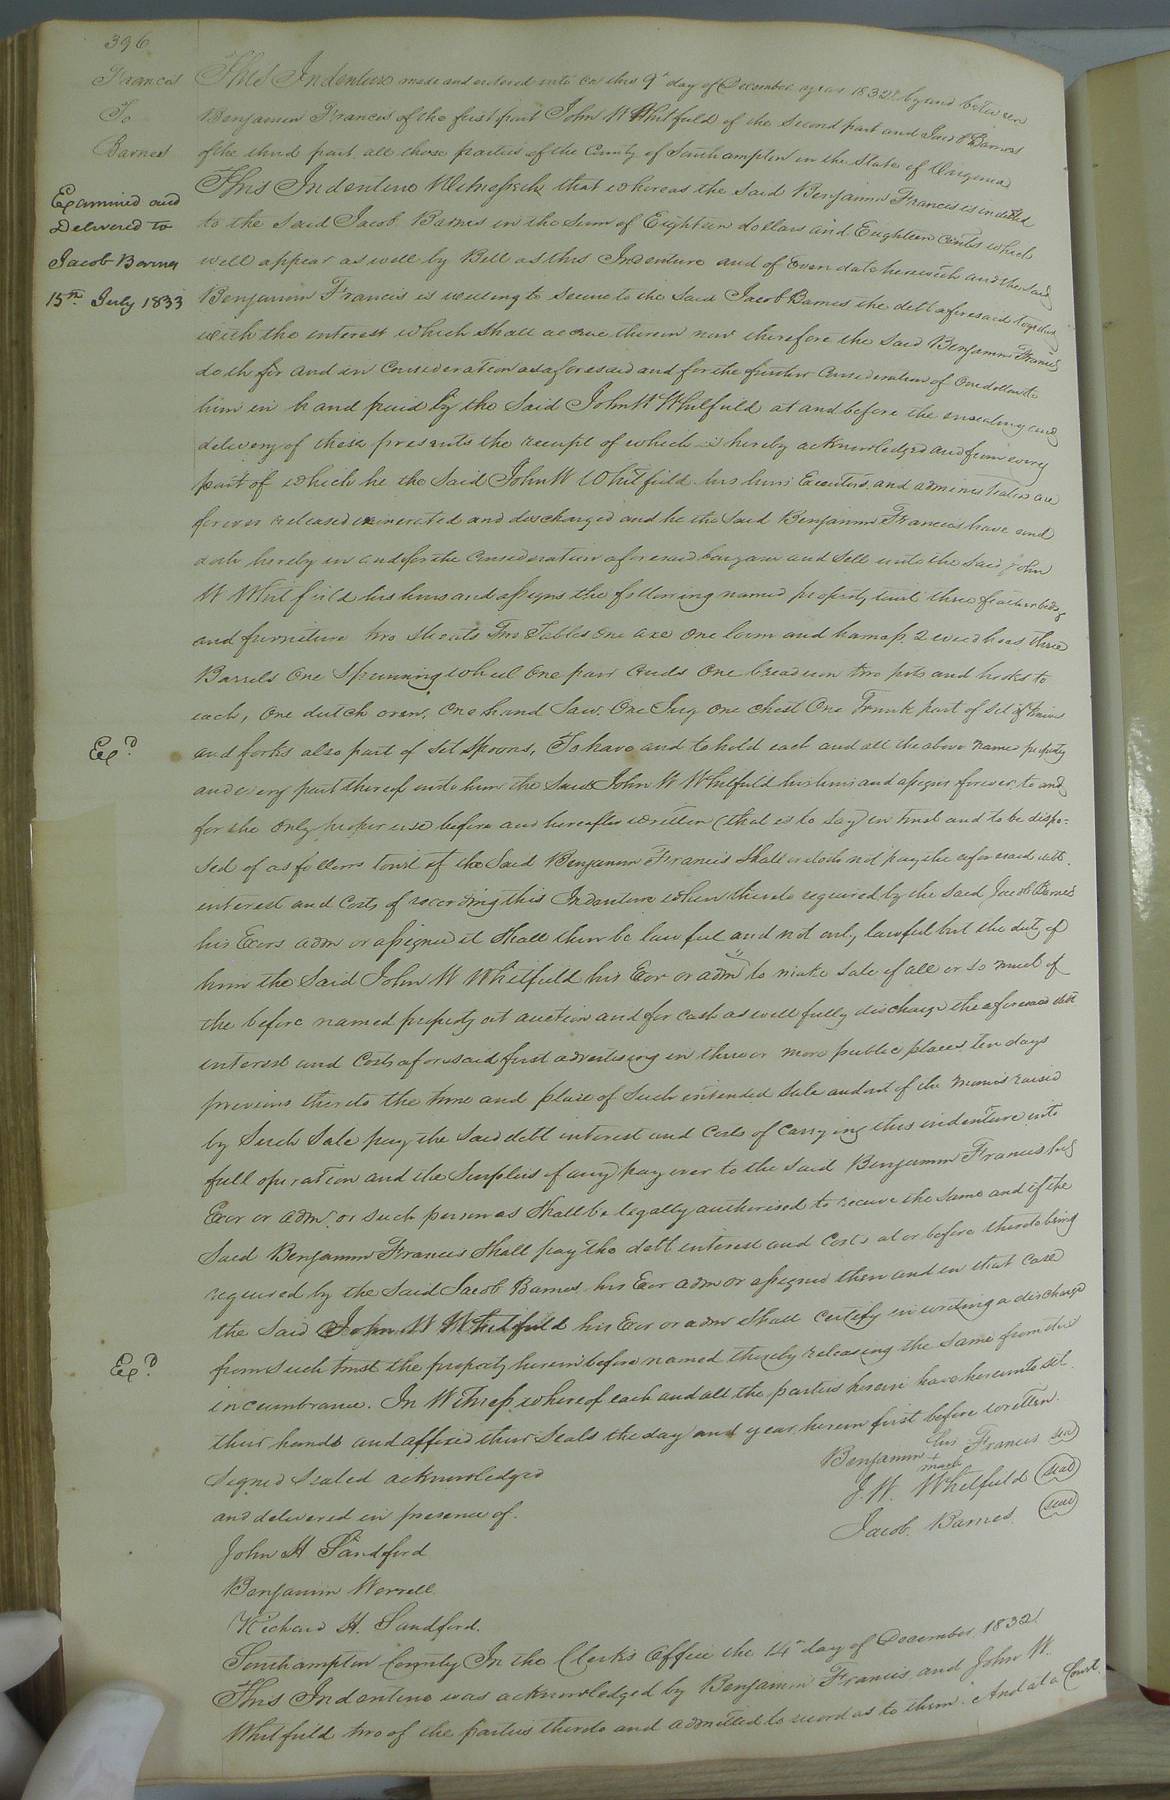 396
Francis
To
Barnes
Examined and
Delivered to
Jacob Barnes
15th July 1833
This Indenture made and entered into on this 9th day of December year 1832 by and between
Benjamin Francis of the first part John W Whitfield of the Second part and Jacob Barnes
of the third part, all these parties of the County of Southampton in the State of Virginia
This Indenture Witnesseth that whereas the Said Benjamin Francis is indebted
to the Said Jacob Barnes in the Sum of Eighteen dollars and Eighteen Cents which
will appear as well by Bill as this Indenture and of Even date herewith and the Said
Benjamin Francis is willing to Secure to the Said Jacob Barnes the debt aforesaid together
with the interest which Shall accrue therein now therefore the Said Benjamin Francis
doth for and in Consideration as aforesaid and for the further Consideration of One dollar to
him in hand paid by the Said John W Whitfield at and before the ensealing and
delivery of these presents the receipt of which is hereby acknowledged and from every
part of which he the Said John W Whitfield his heirs Executors and administrators are
forever released exonerated and discharged and he the Said Benjamin Francis have and
doth hereby in and for the Consideration aforesaid bargain and Sell unto the Said John
W Whitfield his heirs and assigns the following named property towit three feather beds
and furniture two Shoats Two Tables One axe One loom and harness. 2 weed hoes three
Barrels One Spinning wheel One pair Cards One bread urn two pots and hooks to
each, One dutch oven, One hand Saw. One Jug One Chest One Trunk part of Set of knives
and forks also part of Set Spoons, To have and to hold each and all the above named property
Exd
and every part thereof unto him the Said John W Whitfield his heirs and assigns forever, to and
for the only proper use before and hereafter written (that is to Say) in trust and to be dispo-
sed of as follows towit if the Said Benjamin Francis Shall or doth not pay the aforesaid debt.
interest and Costs of recording this Indenture when thereto required by the Said Jacob Barnes
his Exors adm or assigns it Shall then be lawful and not only lawful but the duty of
him the Said John W Whitfield his Exor or adm to make Sale of all or So much of
the before named property at auction and for Cash as will fully discharge the aforesaid debt
interest and Costs aforesaid first advertising in three or more public places ten days
previous thereto the time and place of Such intended Sale and out of the monies raised
by Such Sale pay the Said debt interest and Costs of Carrying this indenture into
full operation and the Surplus if any pay over to the Said Benjamin Francis his
Exor or adm. or such person as Shall be legally authorised to receive the Same and if the
Said Benjamin Francis Shall pay the debt interest and Costs at or before thereto being
required by the Said Jacob Barnes his Exor adm or assigns then and in that Case
the Said John W Whitfield his Exor or adm Shall Certify in writing a discharge
from Such trust the property herein before named thereby releasing the Same from this
Exd
incumbrance. In Witness whereof each and all the parties herein have hereunto Set
their hands and affixed their Seals the day and year herein first before written.
Signed Sealed acknowledged
and delivered in presence of.
Benjamin his + mark Francis (Seal)
J. W. Whitfield (Seal)
Jacob Barnes (Seal)
John H Sandford
Benjamin Worrell
Richard H. Sandford.
Southampton County In the Clerk's Office the 14th day of December 1832.
This Indenture was acknowledged by Benjamin Francis and John W.
Whitfield two of the parties thereto and admitted to record as to them. And at a Court